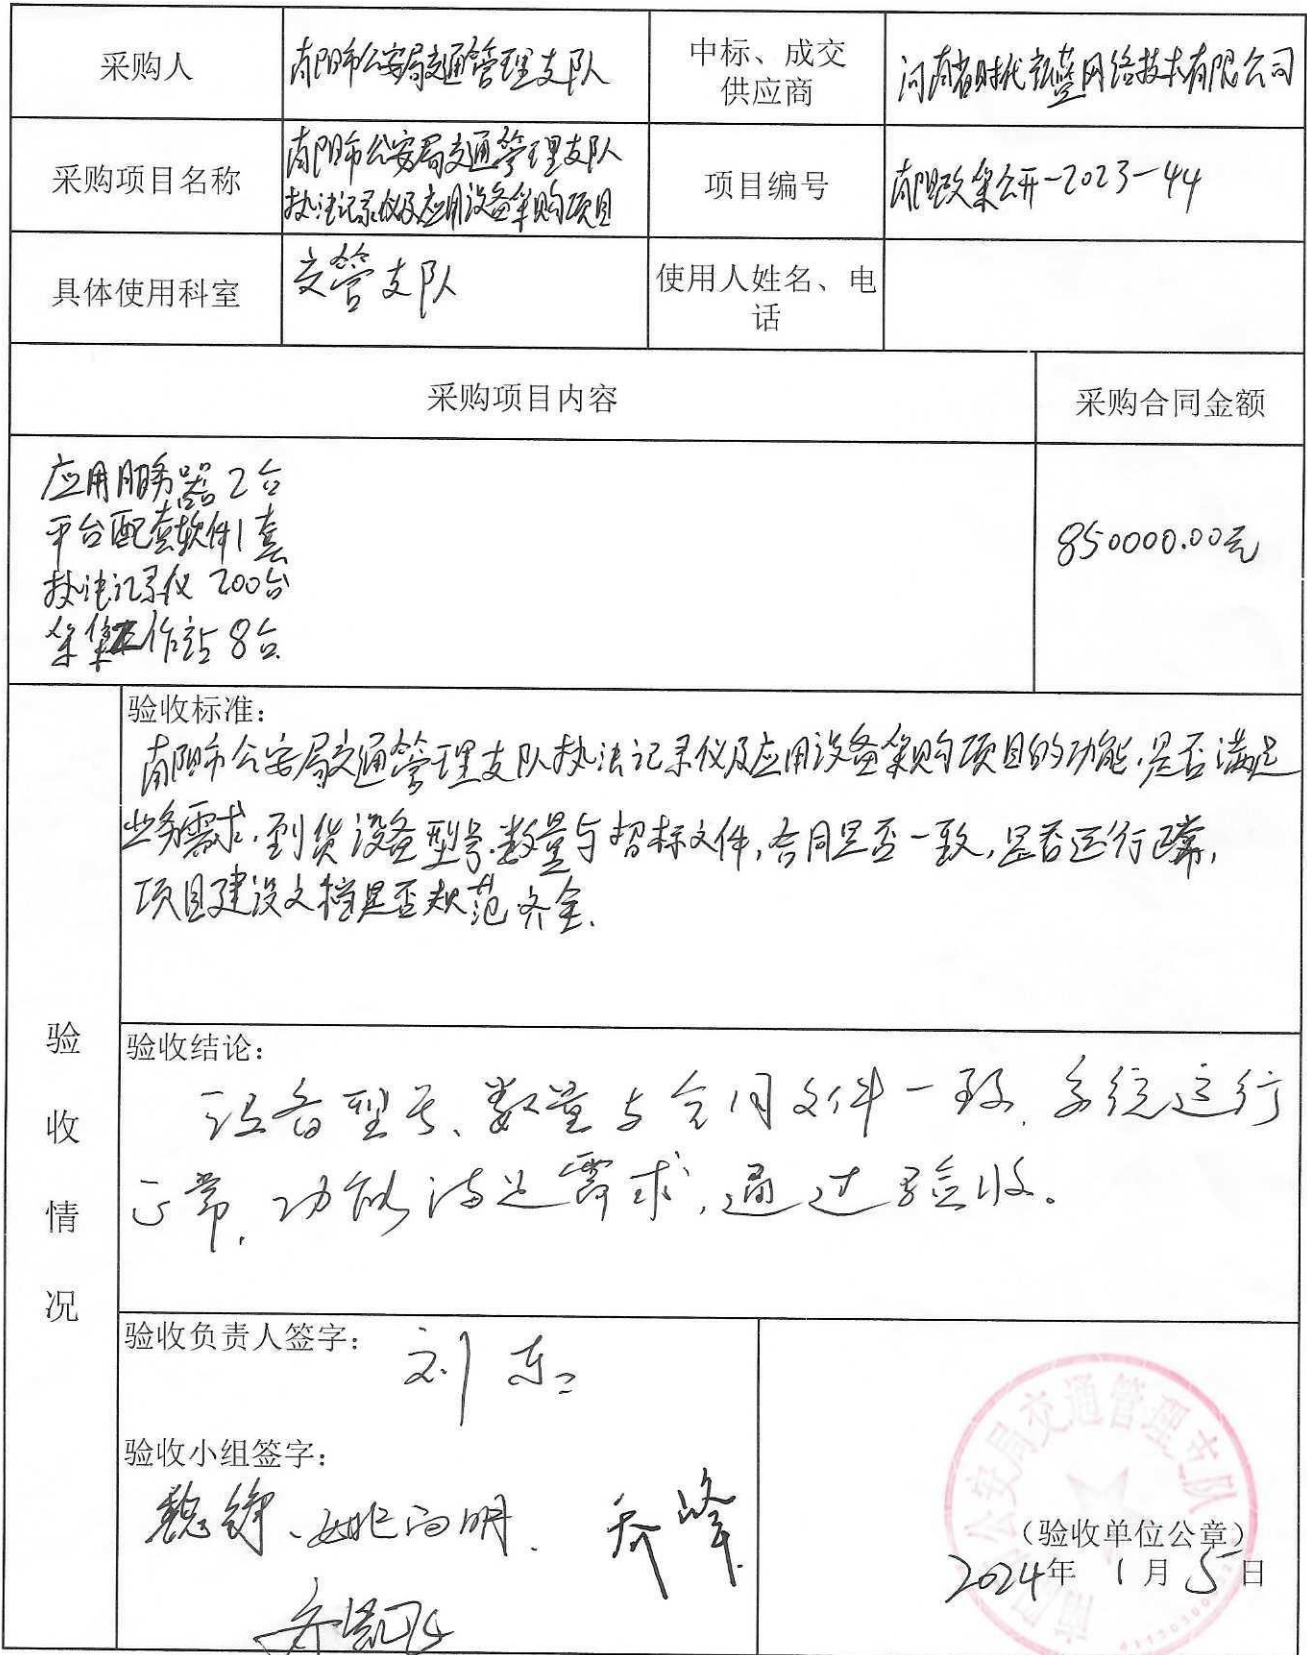 采购人
南阳市公安局交通管理支队
中标、成交
供应商
河南省时代新蓝网络技术有限公司
采购项目名称
南阳市公安局交通管理支队
执法记录仪及应用设备采购项目
项目编号
南阳政采公开-2023-44
具体使用科室
交管支队
使用人姓名、电
话
采购项目内容
采购合同金额
应用服务器2台
平台配套软件1套
执法记录仪 200台
采集工作站8台
850000.00元
验收情况
验收标准:
南阳市公安局交通管理支队执法记录仪及应用设备采购项目的功能.是否满足
业务需求.到货设备型号.数量与招标文件,合同是否一致,是否运行正常,
项目建设文档是否规范齐全.
验收结论:
设备型号、数量与合同文件一致.系统运行
正常.功能满足需求,通过验收。
验收负责人签字:
刘
验收小组签字:
乔峰
公安局交通管理支队
(验收单位公章)
2024年 1月5日